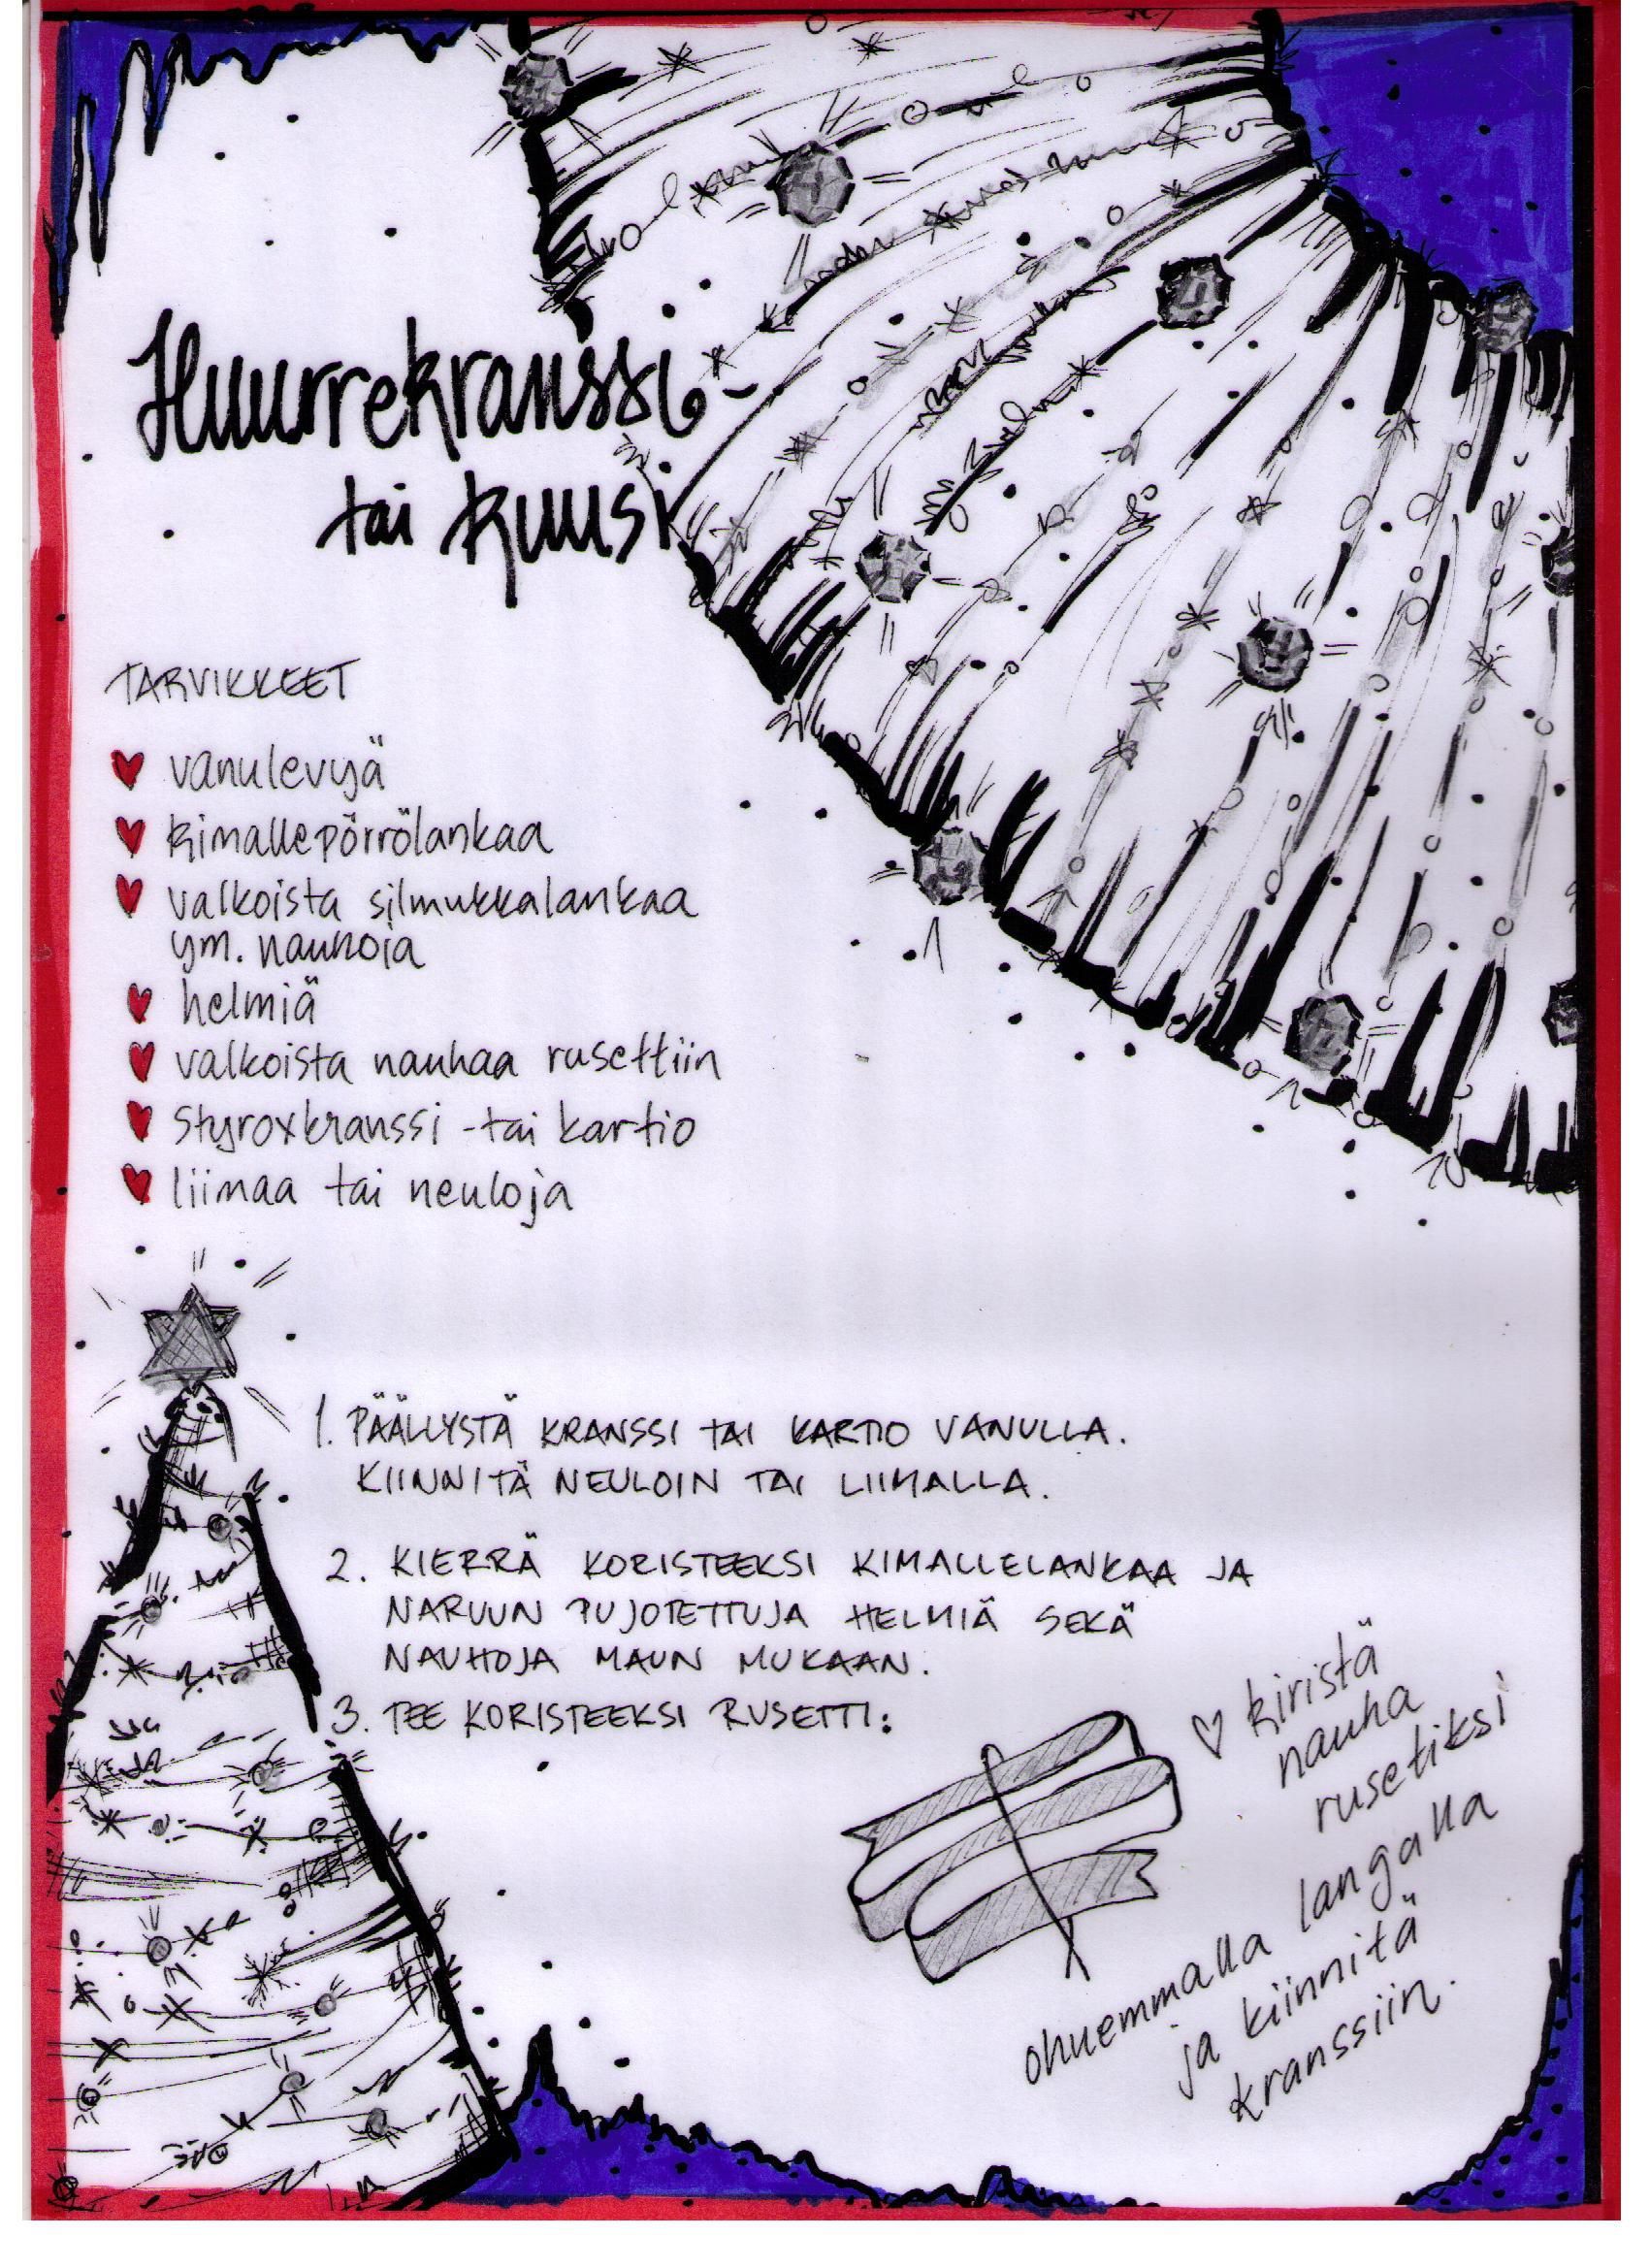 Huurrekranssi-
tai kuusi
TARVIKKEET
vanulevyä
kimallepörrölankaa
valkoista silmukkalankaa
ym. nauhoja
helmiä
valkoista nauhaa rusettiin
styroxkranssi -tai kartio
liimaa tai neuloja
1. PÄÄLLYSTÄ KRANSSI TAI KARTIO VANULLA.
KIINNITÄ NEULOIN TAI LIIMALLA.
2. KIERRÄ KORISTEEKSI KIMALLELANKAA JA
NARUUN PUJOTETTUJA HELMIÄ SEKÄ
NAUHOJA MAUN MUKAAN.
3. TEE KORISTEEKSI RUSETTI:
♡ kiristä
nauha
rusetiksi
ohuemmalla langalla
ja kiinnitä
kranssiin.